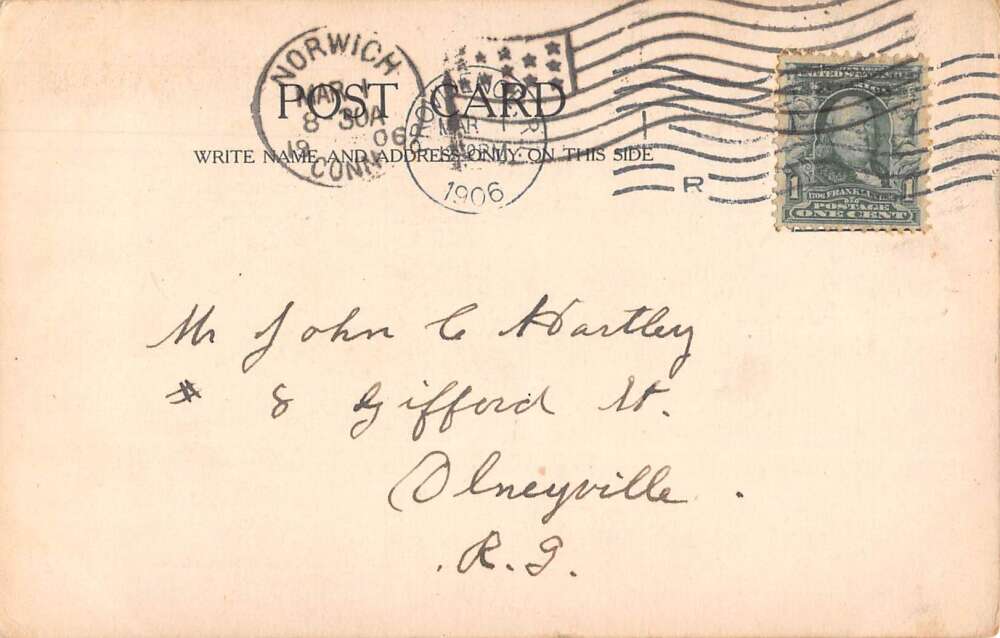 NORWICH
MAR 1
8 30A
19 06
CONN.
MAR
1906
POST CARD
WRITE NAME AND ADDRESS ONLY ON THIS SIDE
R
1 1
FRANKLIN
POSTAGE
ONE CENT
Mr John C Hartley
# 8 Gifford St.
Olneyville
R.I.